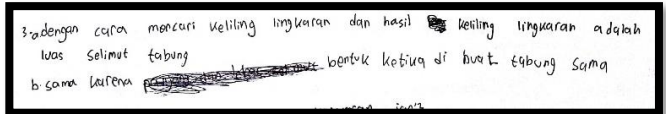 3.a dengan cara mencari keliling lingkaran dan hasil keliling lingkaran adalah
luas selimut tabung
b. sama karena bentuk ketika di buat tabung sama